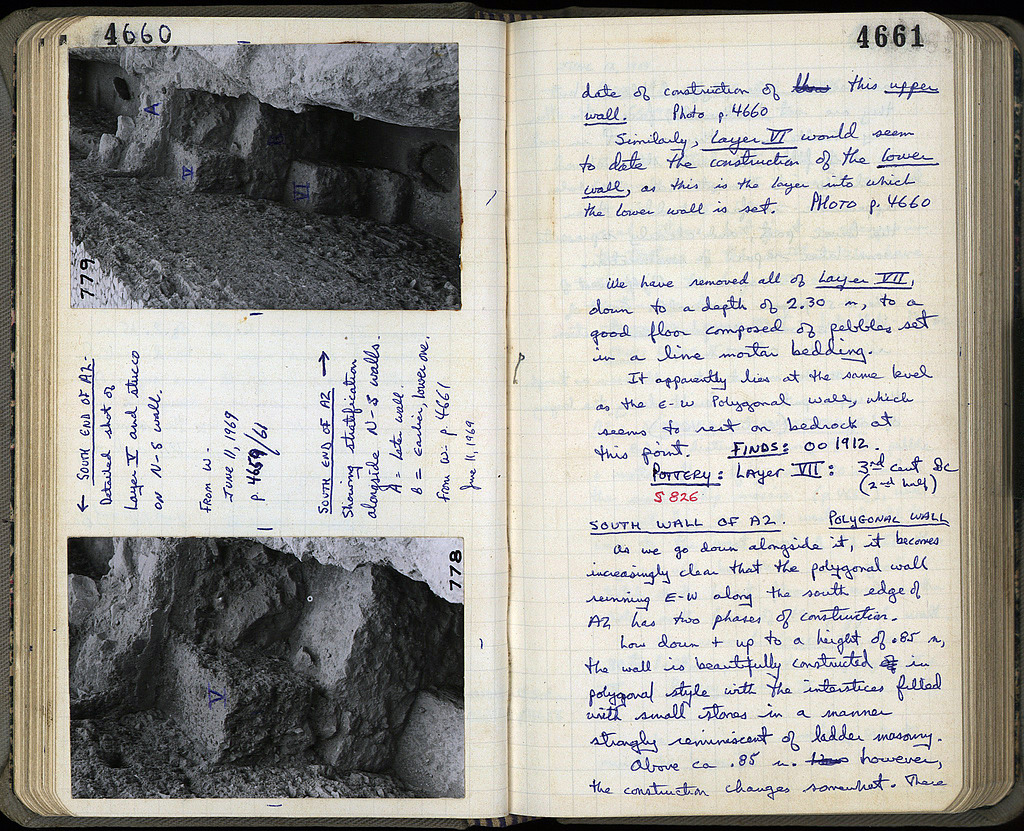 4660
A
B
V
VI
779
← SOUTH END OF A2-
Detailed shot of
Layer V and stucco
on N-S wall.
From W.
June 11, 1969
p 4659/61
SOUTH END OF A2 →
Showing stratification
alongside N-S walls.
A = later wall
B = earlier, lower one.
From W. p 4661
June 11, 1969
778
V
4661
date of construction of this upper
wall. Photo p. 4660
Similarly, Layer VI would seem
to date the construction of the lower
wall, as this is the layer into which
the lower wall is set. PHOTO p. 4660
We have removed all of Layer VII,
down to a depth of 2.30 m, to a
good floor composed of pebbles set
in a lime mortar bedding.
It apparently lies at the same level
as the E-W Polygonal wall, which
seems to rest on bedrock at
this point. FINDS: 00 1912.
POTTERY: Layer VII: 3rd cent BC
(2nd half)
S 826
SOUTH WALL OF A2. POLYGONAL WALL
As we go down alongside it, it becomes
increasingly clear that the polygonal wall
running E-W along the south edge of
A2 has two phases of construction.
Low down + up to a height of .85 m,
the wall is beautifully constructed in
polygonal style with the interstices filled
with small stones in a manner
strongly reminiscent of ladder masonry.
Above ca .85 m. however,
the construction changes somewhat. There